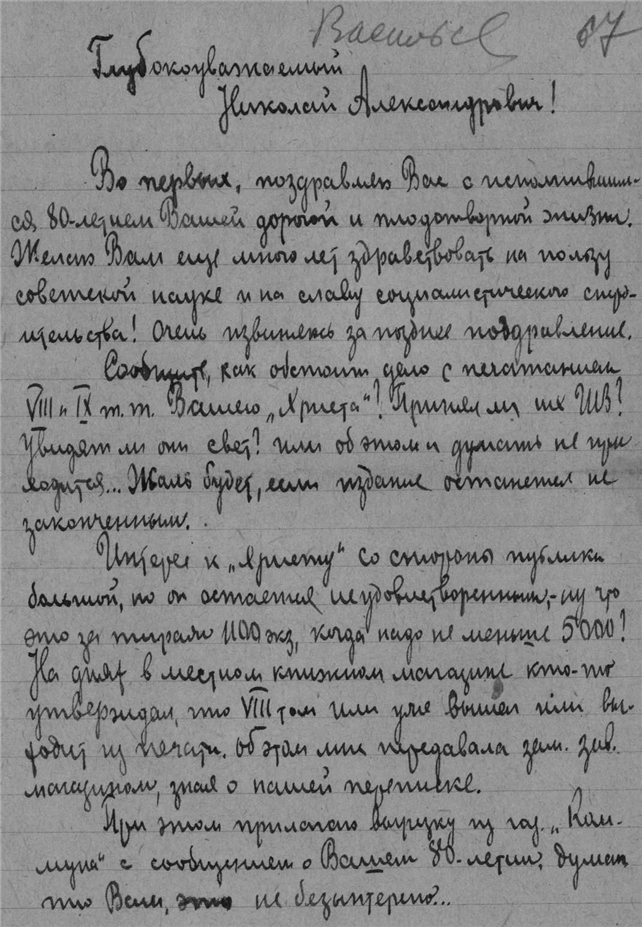 Васильев 87
Глубокоуважаемый
Николай Александрович!
Во первых, поздравляю Вас с исполнившим-
ся 80-летием Вашей дорогой и плодотворной жизни.
Желаю Вам еще много лет здравствовать на пользу
советской науке и на славу социалистического стро-
ительства! Очень извиняюсь за позднее поздравление.
Сообщите, как обстоит дело с печатанием
VIII и IX т.т. Вашего „Христа“? Принял ли их
Увидят ли они свет? или об этом и думать не при-
ходится... Жаль будет, если издание останется не
законченным.
Интерес к „Христу“ со стороны публики
большой, но он остается неудовлетворенным,- ну что
это за тираж 1100 экз, когда надо не меньше 5000?
На днях в местном книжном магазине кто-то
утверждал, что VIII том или уже вышел или вы-
ходит из печати. Об этом мне передавала зам. зав.
магазином, зная о нашей переписке.
При этом прилагаю вырезку из газ. „Ком-
муна“ с сообщением о Вашем 80-летии; думаю
что Вам, это не безынтересно...